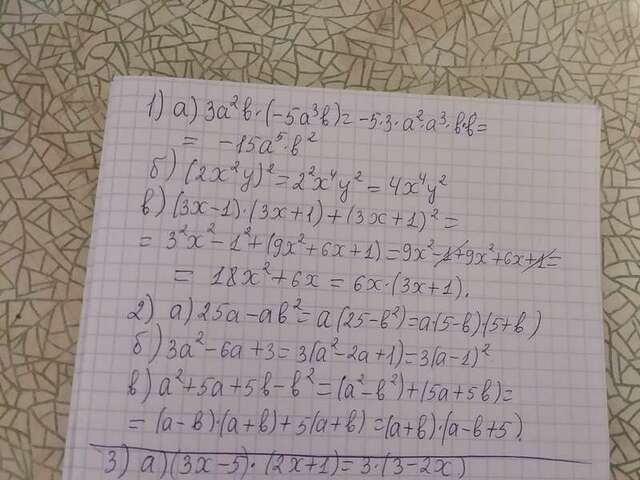 1) а) 3a²b·(-5a³b)=-5·3·a²·a³·b·b=
= -15a⁵·b²
б) (2x²y)²=2²x⁴y²=4x⁴y²
в) (3x-1)·(3x+1)+(3x+1)²=
= 3²x²-1²+(9x²+6x+1)=9x²-1+9x²+6x+1=
= 18x²+6x=6x·(3x+1).
2) а) 25a-ab²=a(25-b²)=a(5-b)(5+b)
б) 3a²-6a+3=3(a²-2a+1)=3(a-1)²
в) a²+5a+5b-b²=(a²-b²)+(5a+5b)=
=(a-b)·(a+b)+5(a+b)=(a+b)·(a-b+5).
3) а) (3x-5)·(2x+1)=3·(3-2x)